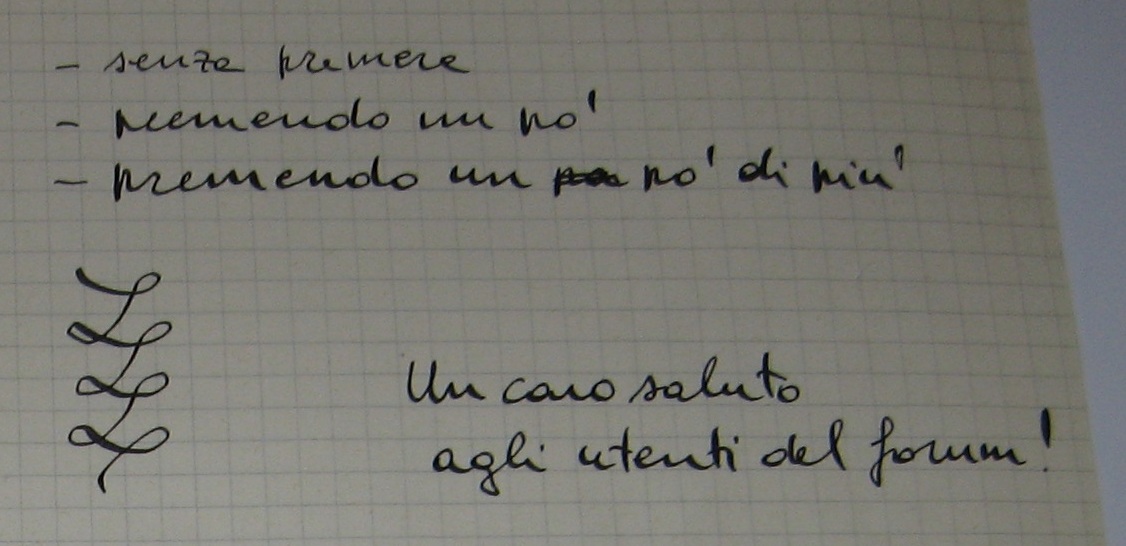 - senza premere
- premendo un po'
- premendo un po' di piu'
Un caro saluto
agli utenti del forum!